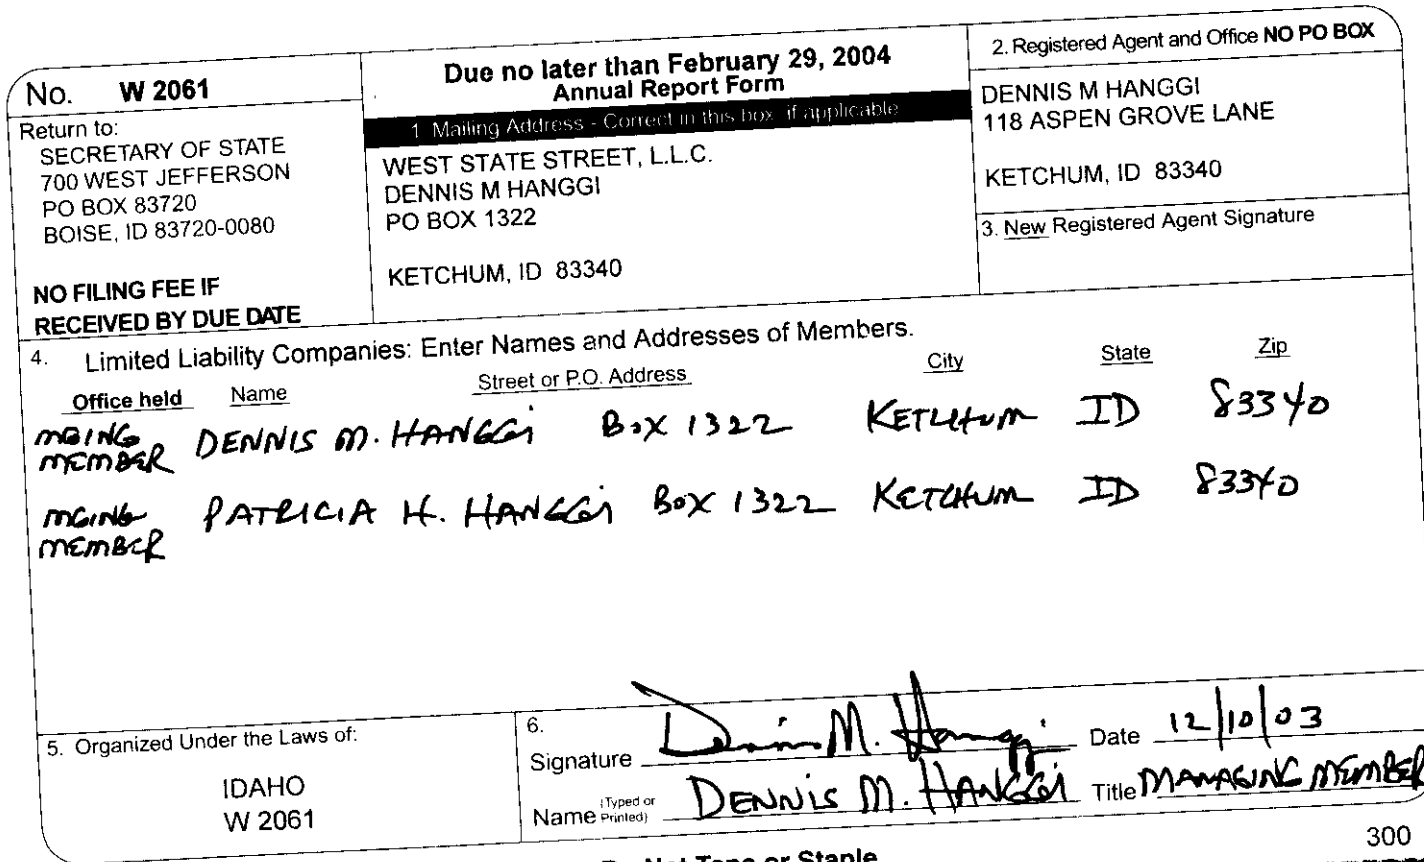 No. W 2061
Return to:
SECRETARY OF STATE
700 WEST JEFFERSON
PO BOX 83720
BOISE, ID 83720-0080
NO FILING FEE IF
RECEIVED BY DUE DATE
Due no later than February 29, 2004
Annual Report Form
1. Mailing Address - Correct in this box if applicable
WEST STATE STREET, L.L.C.
DENNIS M HANGGI
PO BOX 1322
KETCHUM, ID 83340
2. Registered Agent and Office NO PO BOX
DENNIS M HANGGI
118 ASPEN GROVE LANE
KETCHUM, ID 83340
3. New Registered Agent Signature
4. Limited Liability Companies: Enter Names and Addresses of Members.
Office held Name Street or P.O. Address City State Zip
MGING MEMBER DENNIS M. HANGGI BOX 1322 KETCHUM ID 83340
MGING MEMBER PATRICIA H. HANGGI BOX 1322 KETCHUM ID 83340
5. Organized Under the Laws of:
IDAHO
W 2061
6.
Signature Dennis M. Hanggi Date 12/10/03
Name (Typed or Printed) DENNIS M. HANGGI Title MANAGING MEMBER
300
Do Not Tape or Staple